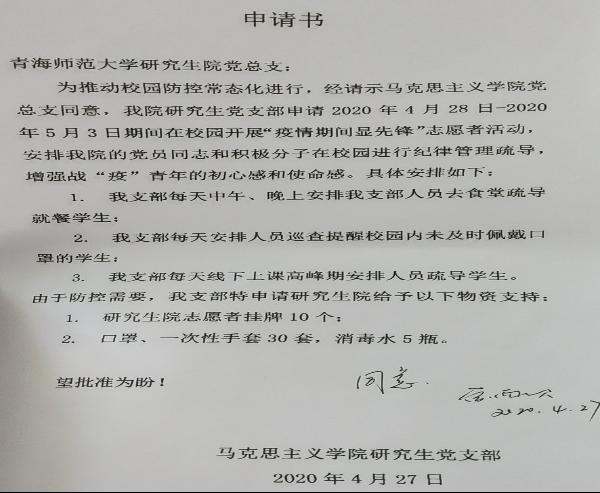 申请书
青海师范大学研究生院党总支：
为推动校园防控常态化进行，经请示马克思主义学院党
总支同意，我院研究生党支部申请 2020 年 4 月 28 日-2020
年 5 月 3 日期间在校园开展“疫情期间显先锋”志愿者活动，
安排我院的党员同志和积极分子在校园进行纪律管理疏导，
增强战“疫”青年的初心感和使命感。具体安排如下：
1. 我支部每天中午、晚上安排我支部人员去食堂疏导
就餐学生；
2. 我支部每天安排人员巡查提醒校园内未及时佩戴口
罩的学生；
3. 我支部每天线下上课高峰期安排人员疏导学生。
由于防控需要，我支部特申请研究生院给予以下物资支持：
1. 研究生院志愿者挂牌 10 个；
2. 口罩、一次性手套 30 套，消毒水 5 瓶。
望批准为盼！
同意.
2020.4.27
马克思主义学院研究生党支部
2020 年 4 月 27 日